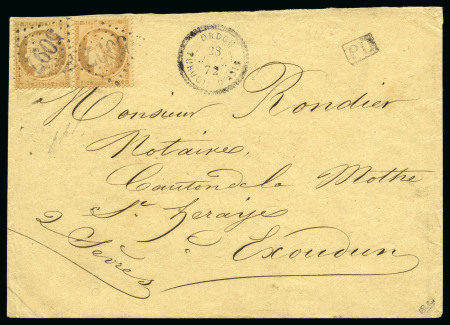 5097 5097
ORDOU
28
72
PD
Monsieur Rondier
Notaire
Canton de la Mothe
St heraye
à Exoudun
2 Sèvres